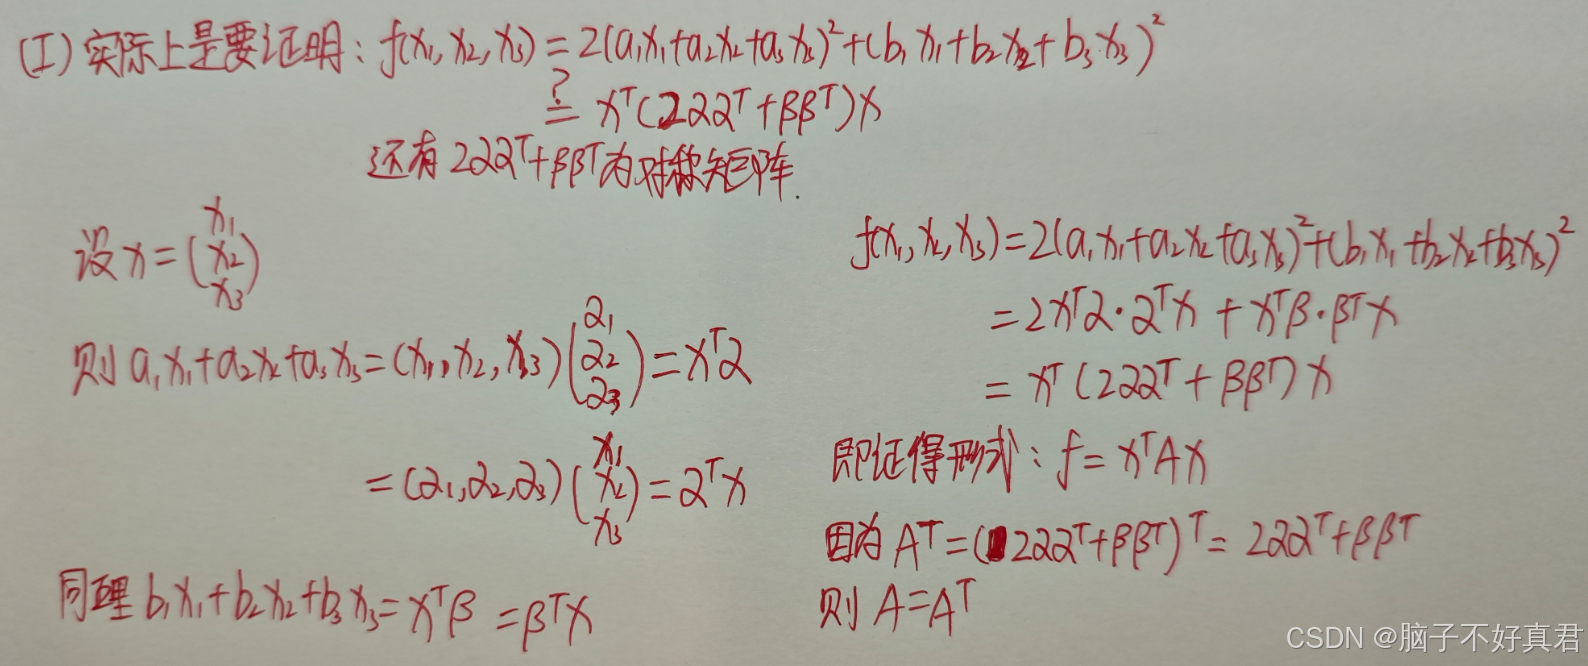 (I) 实际上是要证明：f(x₁, x₂, x₃) = 2(a₁x₁+a₂x₂+a₃x₃)²+(b₁x₁+b₂x₂+b₃x₃)²
≟ xᵀ(2ααᵀ+ββᵀ)x
还有2ααᵀ+ββᵀ为对称矩阵.
设x=(x₁ x₂ x₃)
则a₁x₁+a₂x₂+a₃x₃=(x₁, x₂, x₃)(α₁ α₂ α₃)=xᵀα
=(α₁,α₂,α₃)(x₁ x₂ x₃)=αᵀx
同理b₁x₁+b₂x₂+b₃x₃=xᵀβ=βᵀx
f(x₁, x₂, x₃)=2(a₁x₁+a₂x₂+a₃x₃)²+(b₁x₁+b₂x₂+b₃x₃)²
=2xᵀα·αᵀx+xᵀβ·βᵀx
=xᵀ(2ααᵀ+ββᵀ)x
即证得形式：f=xᵀAx
因为Aᵀ=(2ααᵀ+ββᵀ)ᵀ=2ααᵀ+ββᵀ
则A=Aᵀ
CSDN @脑子不好真君